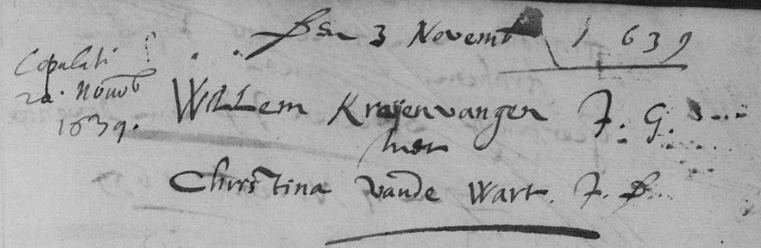 Den 3 Novemb 1639
Copulati
20. Novemb
1639.
Willem Kraijenvanger J. G.
met
Christina vande Wart. J. D